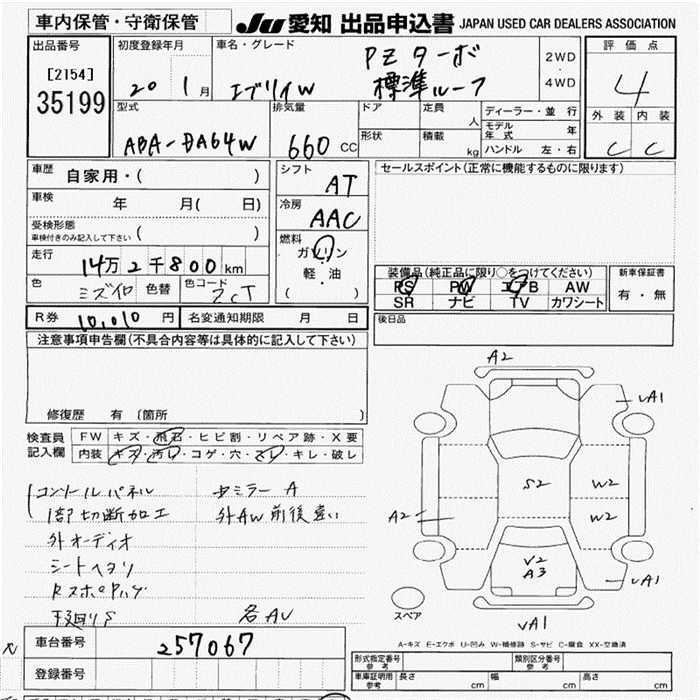 車内保管・守衛保管
JU 愛知 出品申込書 JAPAN USED CAR DEALERS ASSOCIATION
出品番号
[2154]
35199
初度登録年月
20 1月
車名・グレード
エブリイW
PZターボ
標準ルーフ
2WD
4WD
評価点
4
外装 内装
C C
型式
ABA-DA64W
排気量
660 CC
ドア
形状
定員
人
積載
kg
ディーラー・並行
モデル年式 年
ハンドル 左・右
車歴 自家用・( )
車検 年 月( 日)
受検形態
車検付きのみ記入して下さい ( )
走行 14万2千800km
色 ミズイロ 色替 色コード ZCT
シフト
AT
冷房
AAC
燃料
ガソリン
軽・油
( )
セールスポイント(正常に機能するものに限ります)
装備品(純正品に限り○をつけてください)
PS PW エアB AW
SR ナビ TV カワシート
新車保証書
有・無
R券 10,010 円 名変通知期限 月 日
後日品
注意事項申告欄(不具合内容等は具体的に記入して下さい)
修復歴 有 〔箇所 〕
検査員記入欄
FW キズ・飛石・ヒビ割・リペア跡・X要
内装 キズ・汚れ・コゲ・穴・スレ・キレ・破レ
コンソールパネル
1部切断加工
外オーディオ
シートヘタリ
中ミラーA
外AW前後違い
各AU
A2
UA1
S2
W2
W2
A2
V2
A3
UA1
UA1
スペア
A-キズ E-エクボ U-凹み W-補修跡 S-サビ C-腐食 XX-交換済
車台番号 257067
登録番号
形式指定番号
参考
類別区分番号
参考
車庫証明用
参考
長さ cm 幅 cm 高さ cm